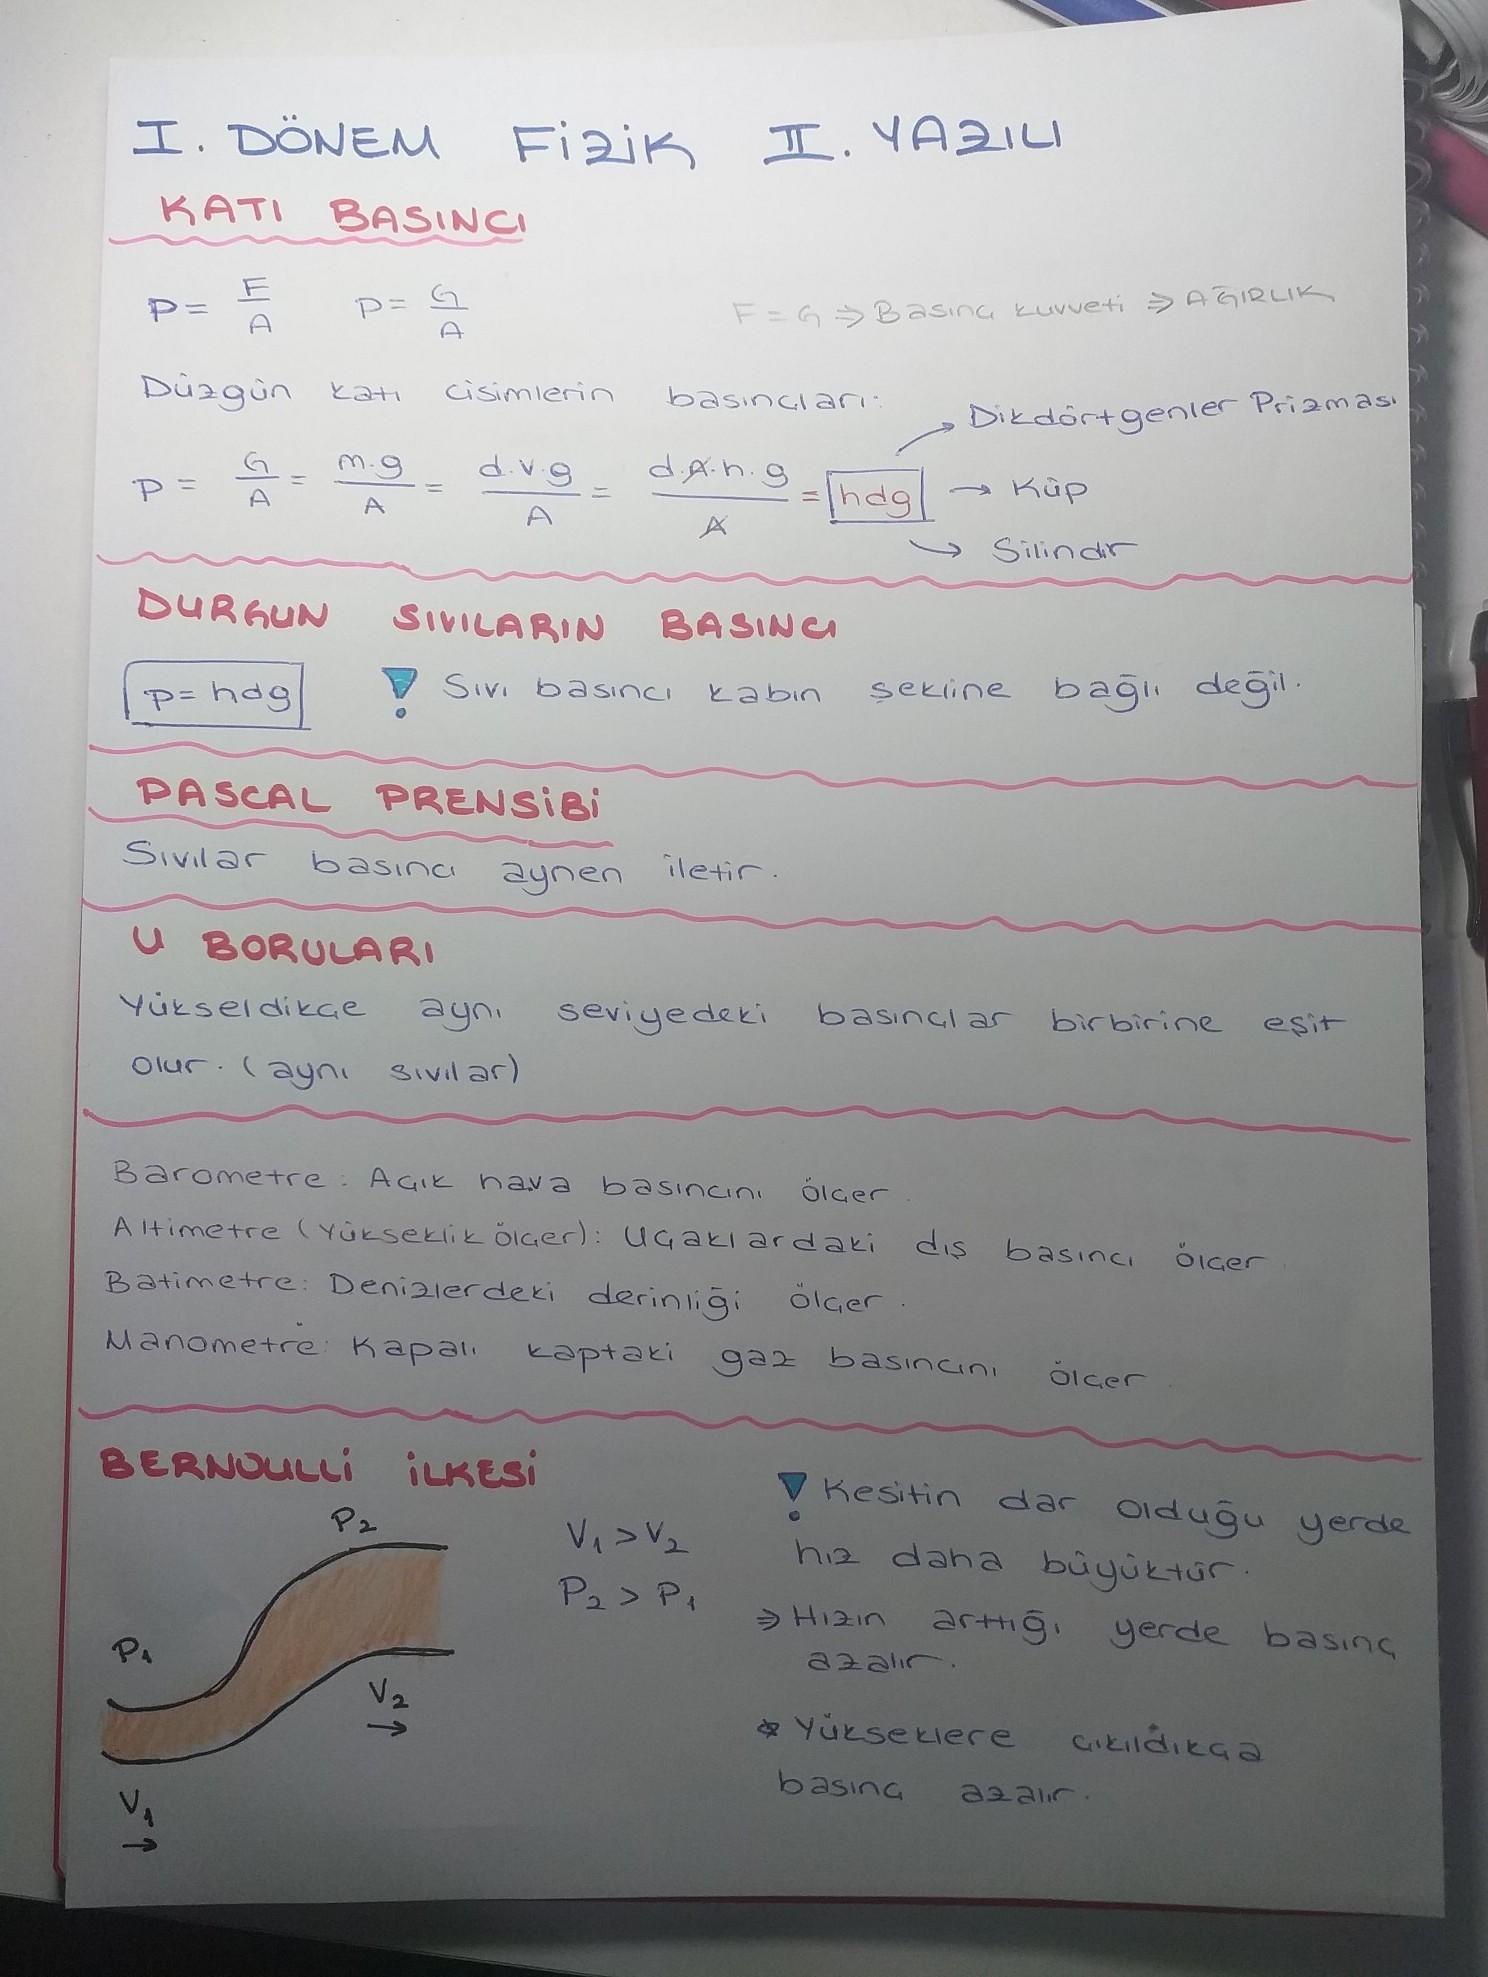 I. DÖNEM FİZİK II. YAZILI
KATI BASINCI
P = F/A P = G/A F = G ⇒ Basınç kuvveti ⇒ AĞIRLIK
Düzgün katı cisimlerin basınçları:
P = G/A = m.g/A = d.v.g/A = d.A.h.g/A = hdg
→ Dikdörtgenler Prizması
→ Küp
→ Silindir
DURGUN SIVILARIN BASINCI
P = hdg ! Sıvı basıncı kabın şekline bağlı değil.
PASCAL PRENSİBİ
Sıvılar basıncı aynen iletir.
U BORULARI
Yükseldikçe aynı seviyedeki basınçlar birbirine eşit
olur. (aynı sıvılar)
Barometre: Açık hava basıncını ölçer.
Altimetre (Yükseklik ölçer): Uçaklardaki dış basıncı ölçer.
Batimetre: Denizlerdeki derinliği ölçer.
Manometre: Kapalı kaptaki gaz basıncını ölçer.
BERNOULLİ İLKESİ
P2
P1
V2 →
V1 →
V1 > V2
P2 > P1
! Kesitin dar olduğu yerde
hız daha büyüktür.
⇒ Hızın arttığı yerde basınç
azalır.
* Yükseklere çıkıldıkça
basınç azalır.